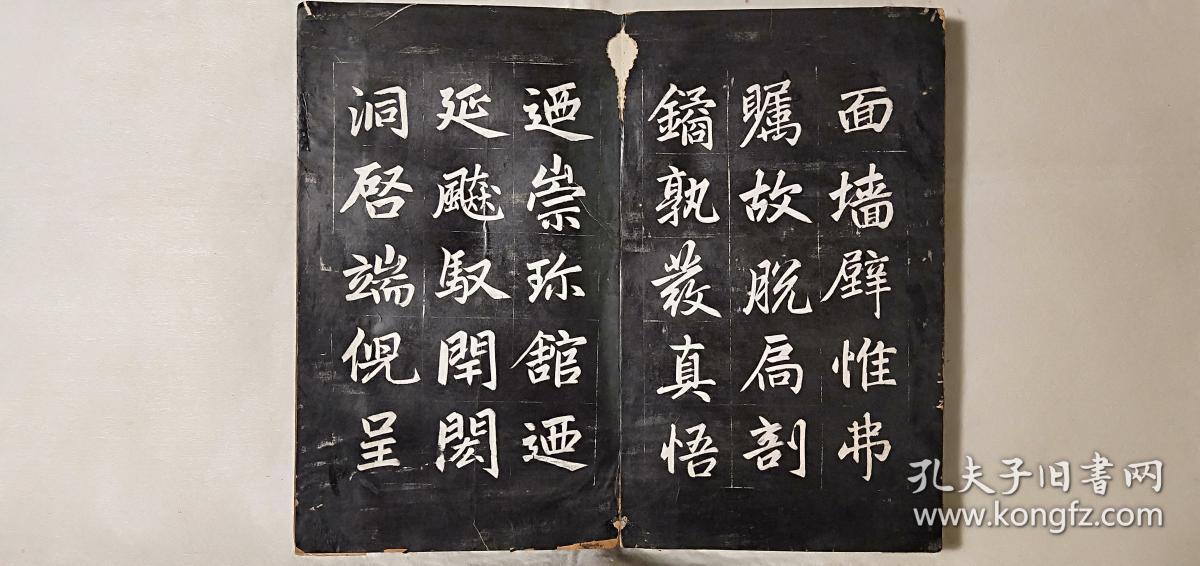 面墻壁惟弗
矚故脱扃剖
鐍孰發真悟
迺崇珎舘迺
延飈馭閈閎
洞启端倪呈
孔夫子旧书网
www.kongfz.com